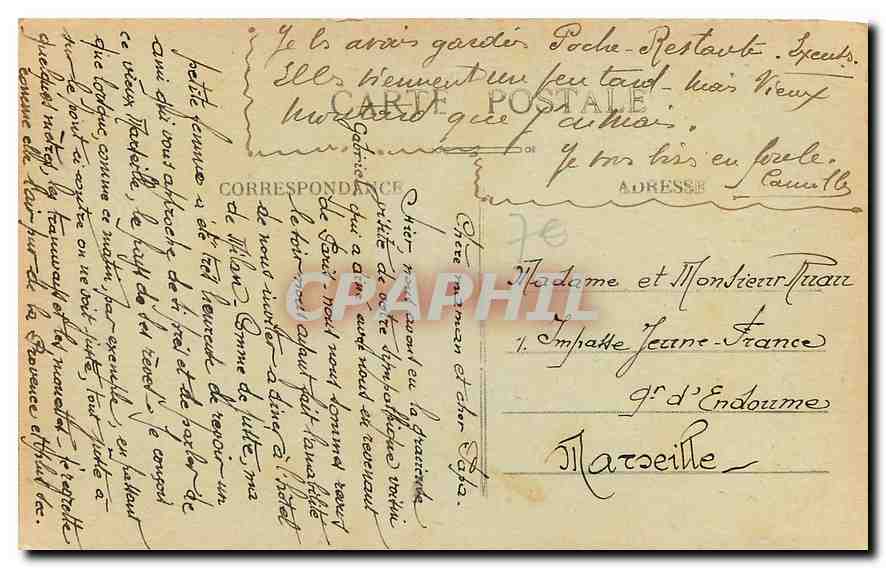 Je les avais gardés Poche-Restante.
Elles viennent un peu tard - mais vieux
que jamais.
Je vous bise en foule.
Camille
CARTE POSTALE
CORRESPONDANCE
ADRESSE
70
Madame et Monsieur Ruau
1. Impasse Jeune-France
qr d'Endoume
Marseille
CPAPHIL
Chère maman et cher Papa.
Hier, nous avons eu la gracieuse
visite de votre sympathique voisin
Gabriel qui a dîné avec nous en revenant
de Paris - nous nous sommes revus
le soir nous ayant fait l'amabilité
de nous inviter à dîner à l'hôtel
de Milan - Comme de juste, ma
petite femme a été très heureuse de revoir un
ami qui vous approche de si près et de parler de
ce vieux Marseille, le pays de ses rêves - je conçois
que lorsque, comme ce matin, par exemple, en passant
sur le pont où contre on ne voit juste, tout juste à
quelques mètres, les tramways et les mouettes - je regrette
comme elle l'air pur de la Provence et plus sec.